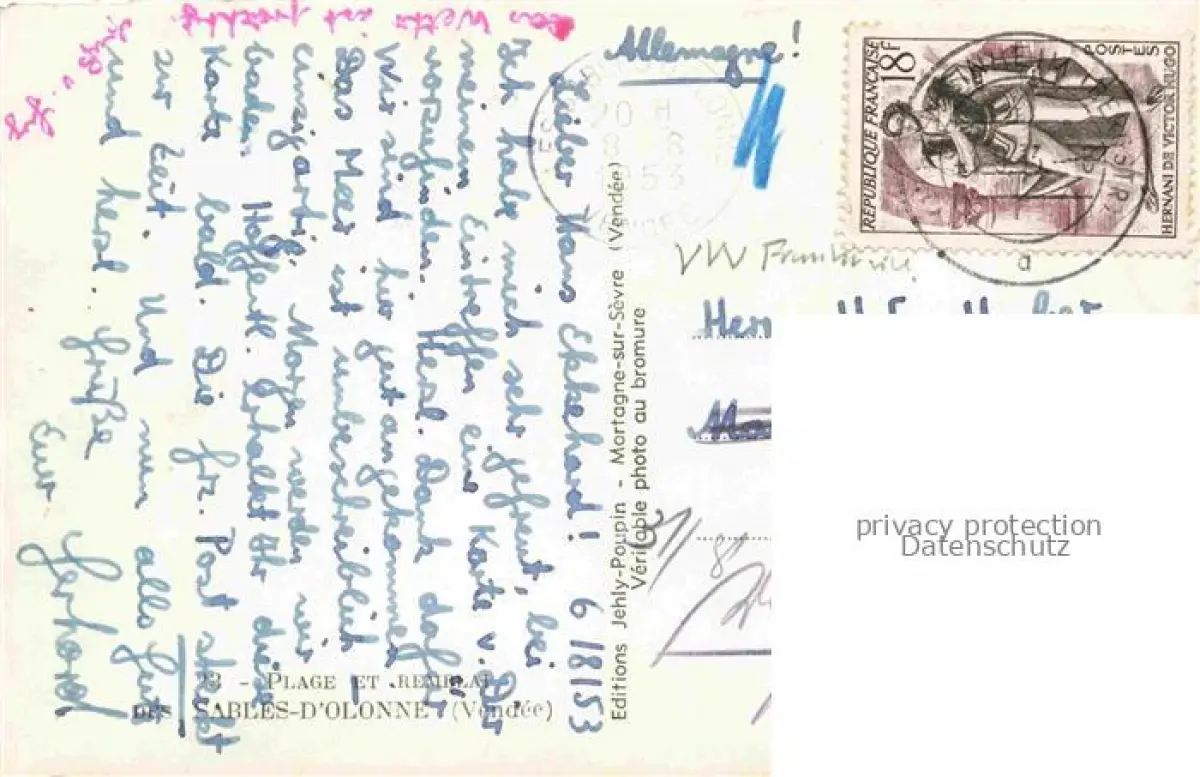 Allemagne!
REPUBLIQUE FRANÇAISE
18F
POSTES
HERNANI DE VICTOR HUGO
20 H
8 - 8
1953
VENDÉE
VW
Herr
Editions Jehly-Poupin - Mortagne-sur-Sèvre (Vendée)
Véritable photo au bromure
- PLAGE ET REMBLAI
DES SABLES-D'OLONNE (Vendée)
6/8/53
Lieber Hans Ekkehard!
Ich habe mich sehr gefreut, bei
meinem Eintreffen eine Karte v. Dir
vorzufinden. Herzl. Dank dafür
Wir sind hier gut angekommen
Das Meer ist unbeschreiblich
einzigartig. Morgen werden wir
baden. Hoffentl. erhaltet Ihr diese
Karte bald. Die frz. Post streikt
zur Zeit. Und nun alles Gute
und herzl. Grüße
Euer Gerhard
Das Wetter ist prächtig.
privacy protection
Datenschutz